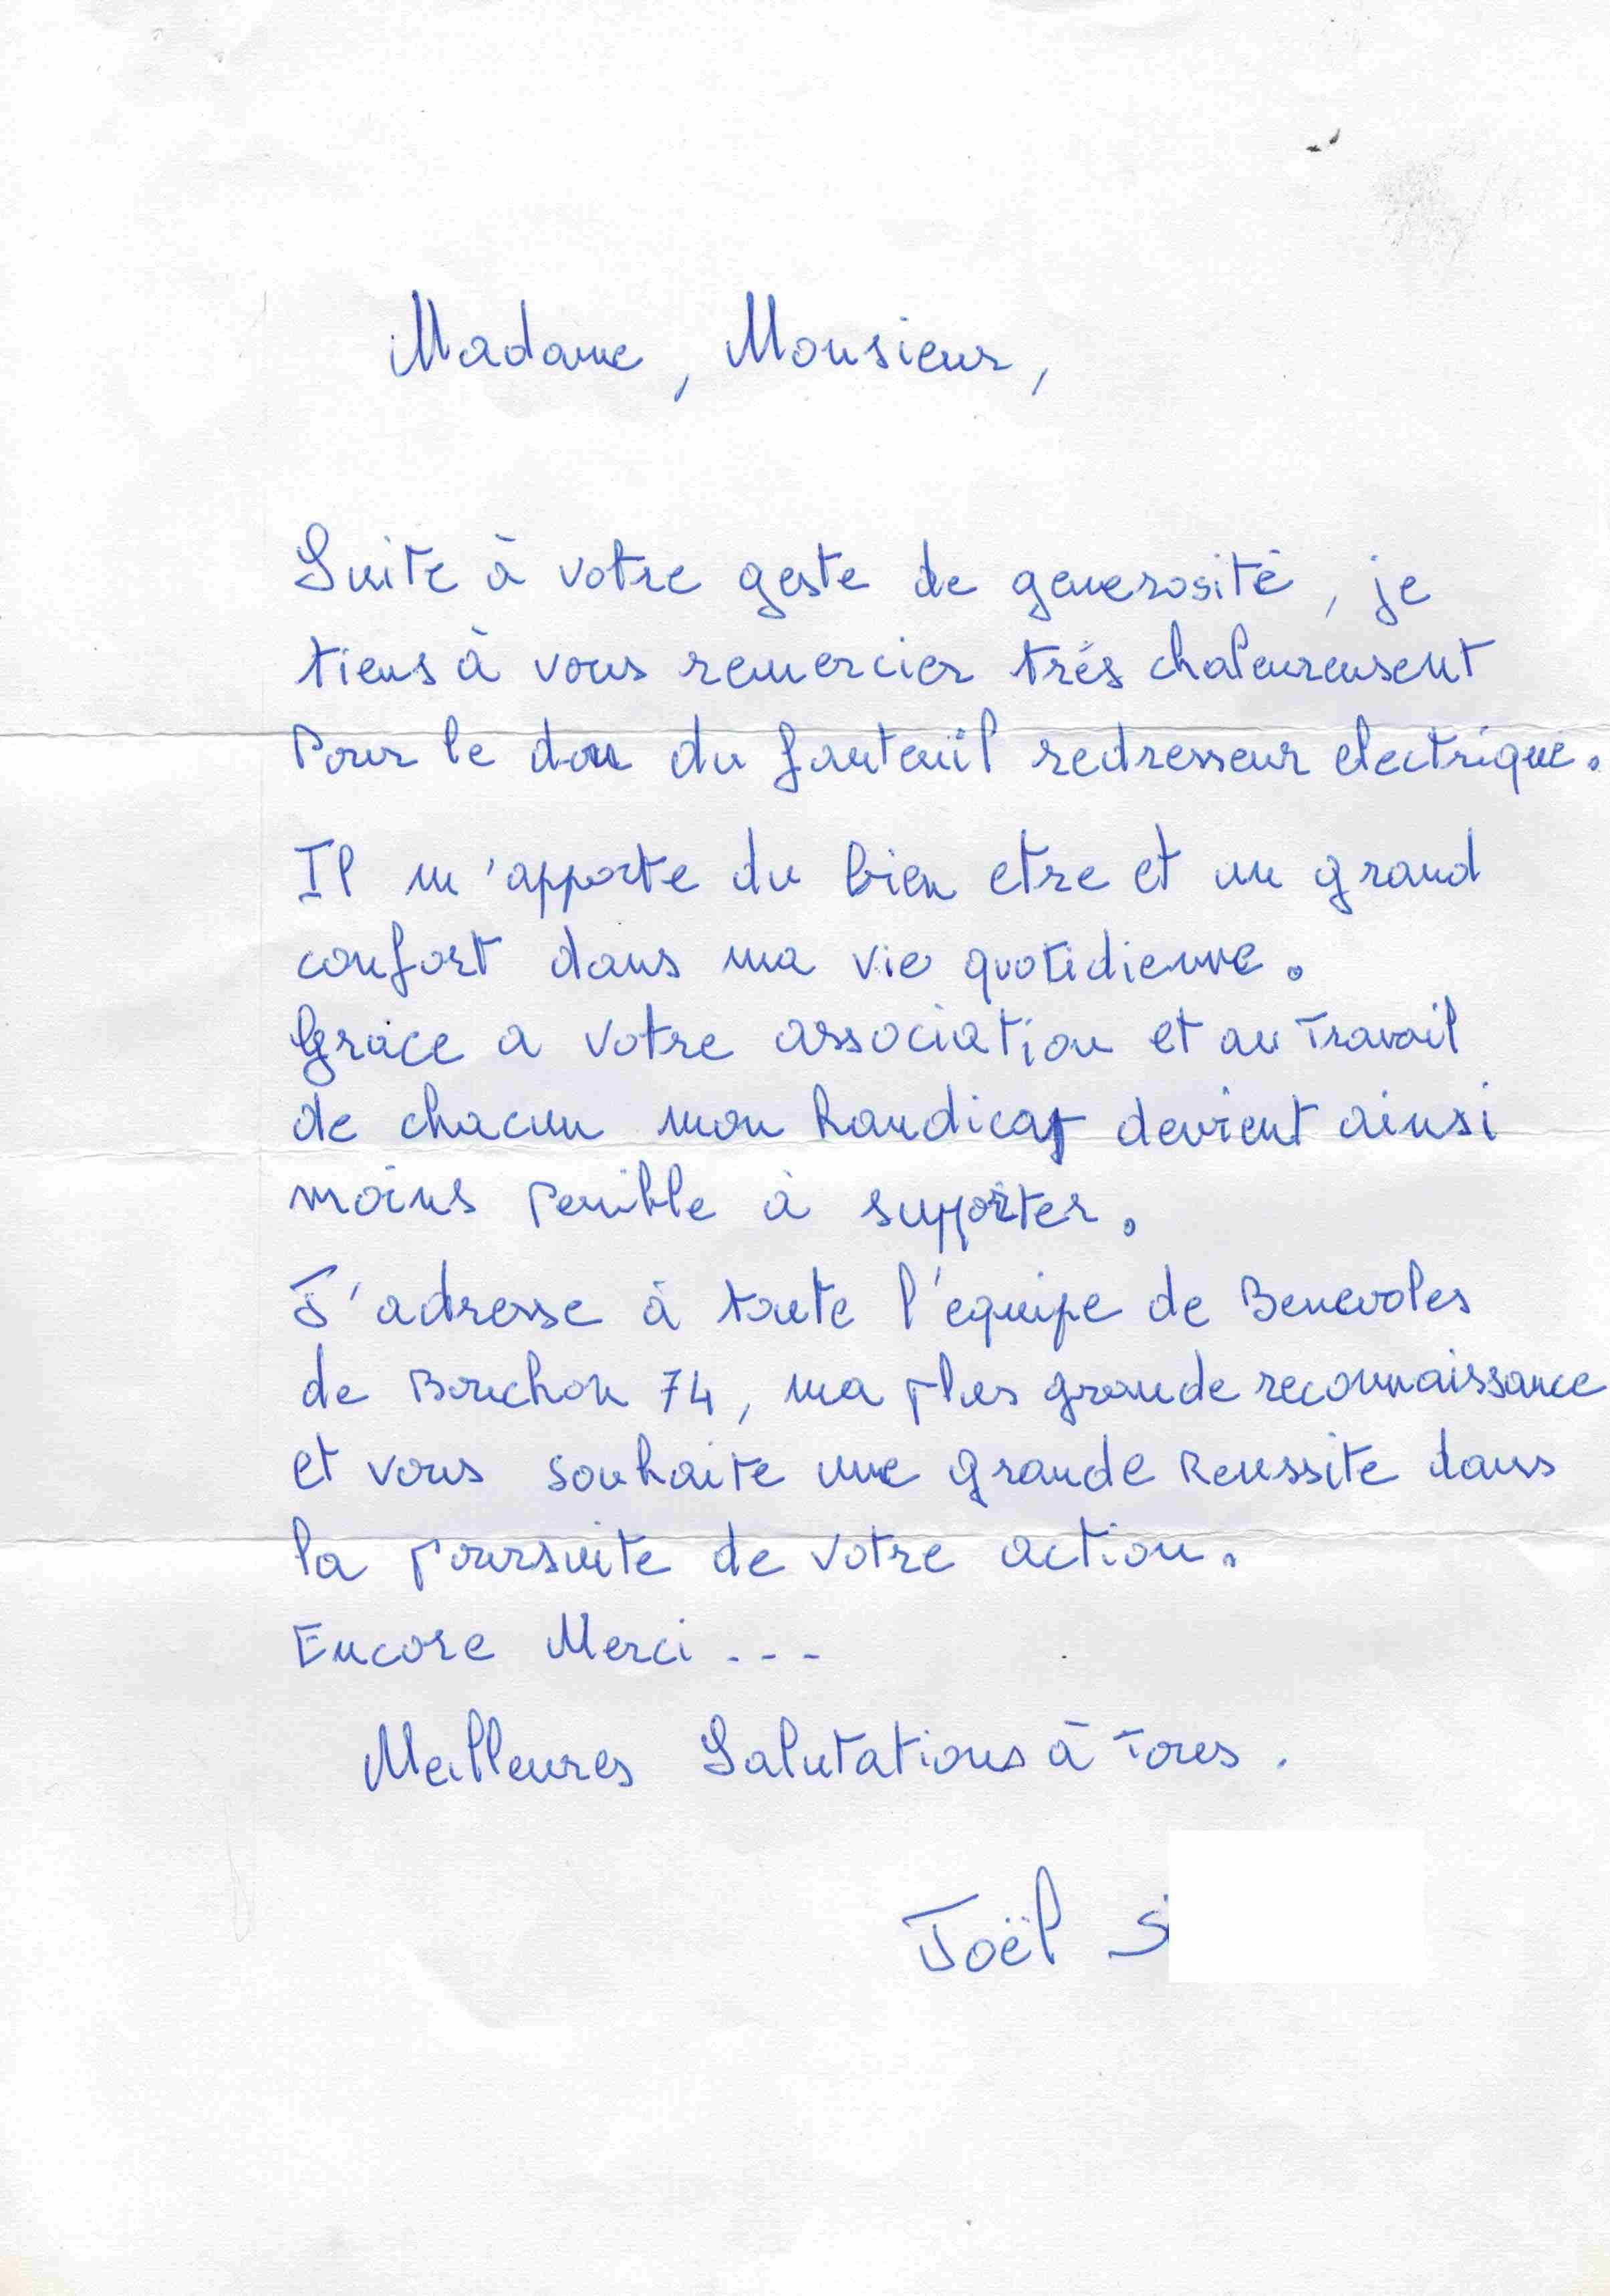 Madame, Monsieur,
Suite à votre geste de generosité, je
tiens à vous remercier trés chaleureusent
Pour le don du fauteuil redresseur electrique.
Il m'apporte du bien etre et un grand
confort dans ma vie quotidienne.
Grace a votre association et au Travail
de chacun mon handicap devient ainsi
moins Penible à supporter.
J'adresse à toute l'equipe de Benevoles
de Bouchon 74, ma plus grande reconnaissance
et vous souhaite une grande Reussite dans
la poursuite de votre action.
Encore Merci ...
Meilleures Salutations à Tous.
Joël S